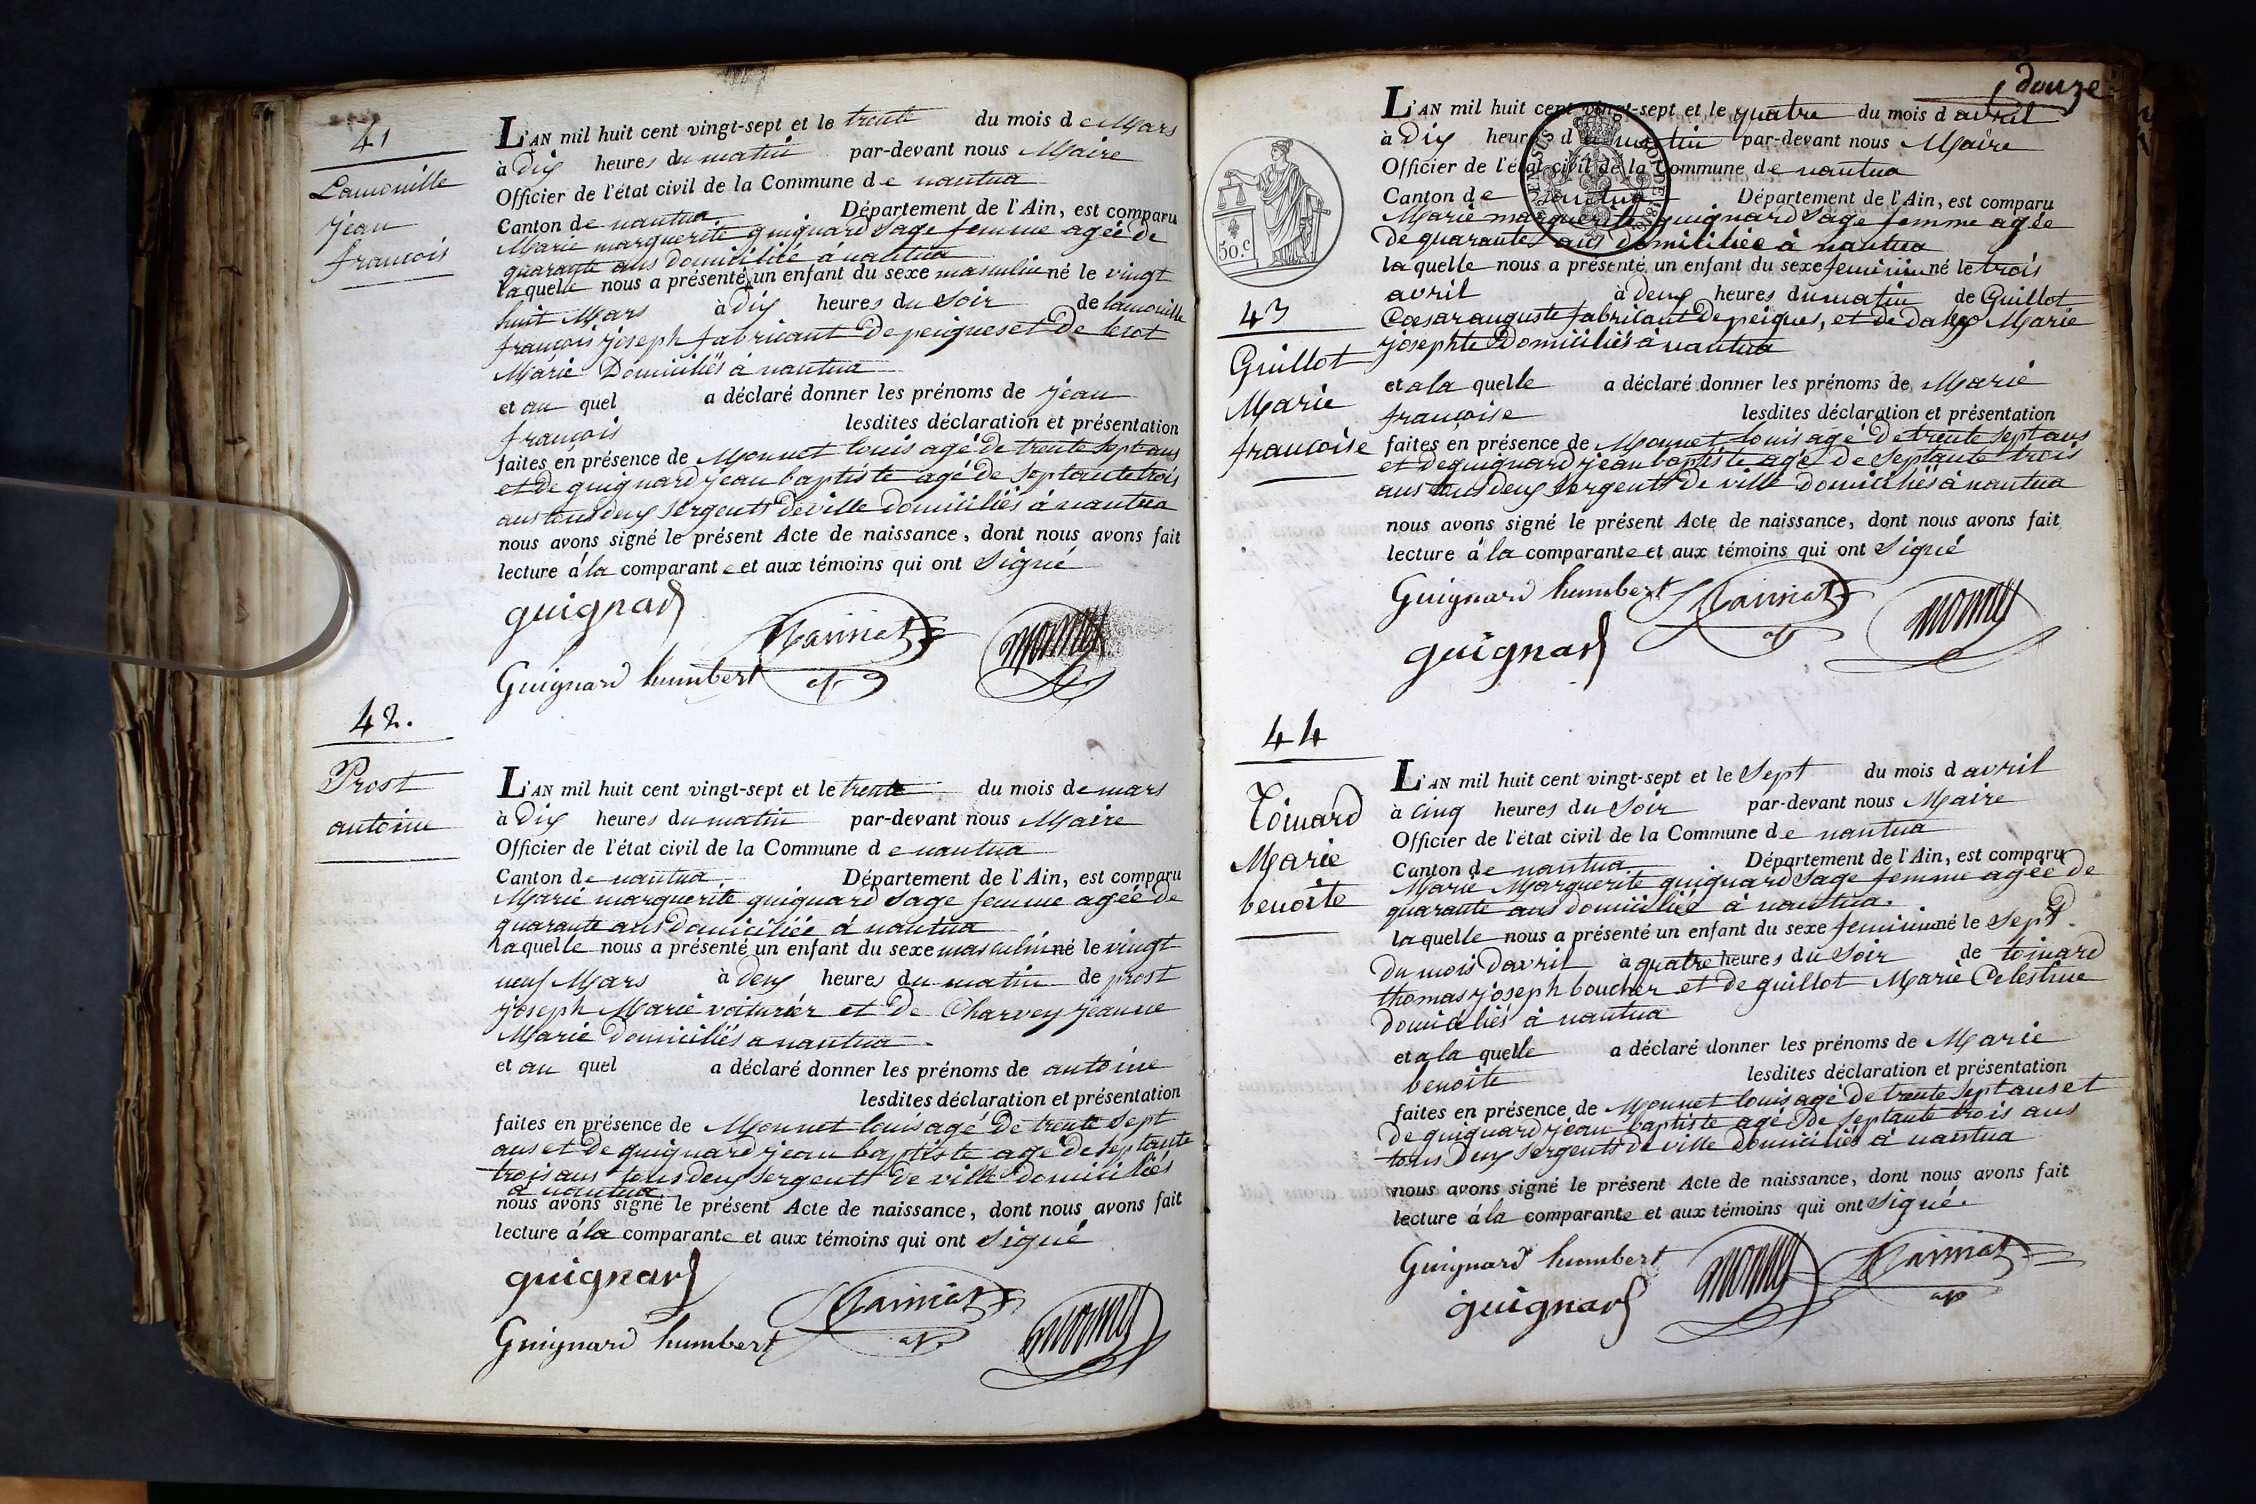 41
Lamouille
jean
francois
L'AN mil huit cent vingt-sept et le trente du mois de Mars
à dix heures du matin par-devant nous Maire
Officier de l'état civil de la Commune de nantua
Canton de nantua Département de l'Ain, est comparu
Marie marguerite guignard sage femme agée de
quarante ans domiciliée à nantua
laquelle nous a présenté un enfant du sexe masculin né le vingt
huit Mars à dix heures du soir de lamouille
françois joseph fabricant de peignes et de
Marie Domiciliés à nantua
et au quel a déclaré donner les prénoms de jean
françois lesdites déclaration et présentation
faites en présence de Monnet louis agé de trente sept ans
et de guignard jean baptiste agé de septante trois
ans tous deux sergents de ville domiciliés à nantua
nous avons signé le présent Acte de naissance, dont nous avons fait
lecture à la comparante et aux témoins qui ont signé
guignard
Guignard humbert
monnet
42.
Prost
antoine
L'AN mil huit cent vingt-sept et le trente du mois de mars
à dix heures du matin par-devant nous Maire
Officier de l'état civil de la Commune de nantua
Canton de nantua Département de l'Ain, est comparu
Marie marguerite guignard sage femme agée de
quarante ans domiciliée à nantua
laquelle nous a présenté un enfant du sexe masculin né le vingt
neuf Mars à deux heures du matin de prost
joseph Marie voiturier et de Charvey jeanne
Marie domiciliés a nantua
et au quel a déclaré donner les prénoms de antoine
lesdites déclaration et présentation
faites en présence de Monnet louis agé de trente sept
ans et de guignard jean baptiste agé de septante
trois ans tous deux sergents de ville domiciliés
à nantua
nous avons signé le présent Acte de naissance, dont nous avons fait
lecture à la comparante et aux témoins qui ont signé
guignard
Guignard humbert
monnet
douze
50.c
43
Guillot
Marie
francoise
L'AN mil huit cent vingt-sept et le quatre du mois d avril
à dix heures du matin par-devant nous Maire
Officier de l'état civil de la Commune de nantua
Canton de nantua Département de l'Ain, est comparu
Marie marguerite guignard sage femme agée
de quarante ans domiciliée à nantua
laquelle nous a présenté un enfant du sexe feminin né le trois
avril à deux heures du matin de Guillot
Cæsar auguste fabricant de peignes, et de Marie
josephte Domiciliés à nantua
et a la quelle a déclaré donner les prénoms de Marie
françoise lesdites déclaration et présentation
faites en présence de Monnet louis agé de trente sept ans
et de guignard jean baptiste agé de septante trois
ans tous deux sergents de ville domiciliés à nantua
nous avons signé le présent Acte de naissance, dont nous avons fait
lecture à la comparante et aux témoins qui ont signé
Guignard humbert
monnet
guignard
44
Toinard
Marie
benoite
L'AN mil huit cent vingt-sept et le sept du mois d avril
à cinq heures du soir par-devant nous Maire
Officier de l'état civil de la Commune de nantua
Canton de nantua Département de l'Ain, est comparu
Marie Marguerite guignard sage femme agée de
quarante ans domiciliée à nantua.
laquelle nous a présenté un enfant du sexe feminin né le sept
du mois d'avril à quatre heures du soir de toinard
thomas joseph boucher et de guillot Marie Celestine
domiciliés à nantua
et a la quelle a déclaré donner les prénoms de Marie
benoite lesdites déclaration et présentation
faites en présence de Monnet louis agé de trente sept ans et
de guignard jean baptiste agé de septante trois ans
tous deux sergents de ville domiciliés à nantua
nous avons signé le présent Acte de naissance, dont nous avons fait
lecture à la comparante et aux témoins qui ont signé.
Guignard humbert
monnet
guignard